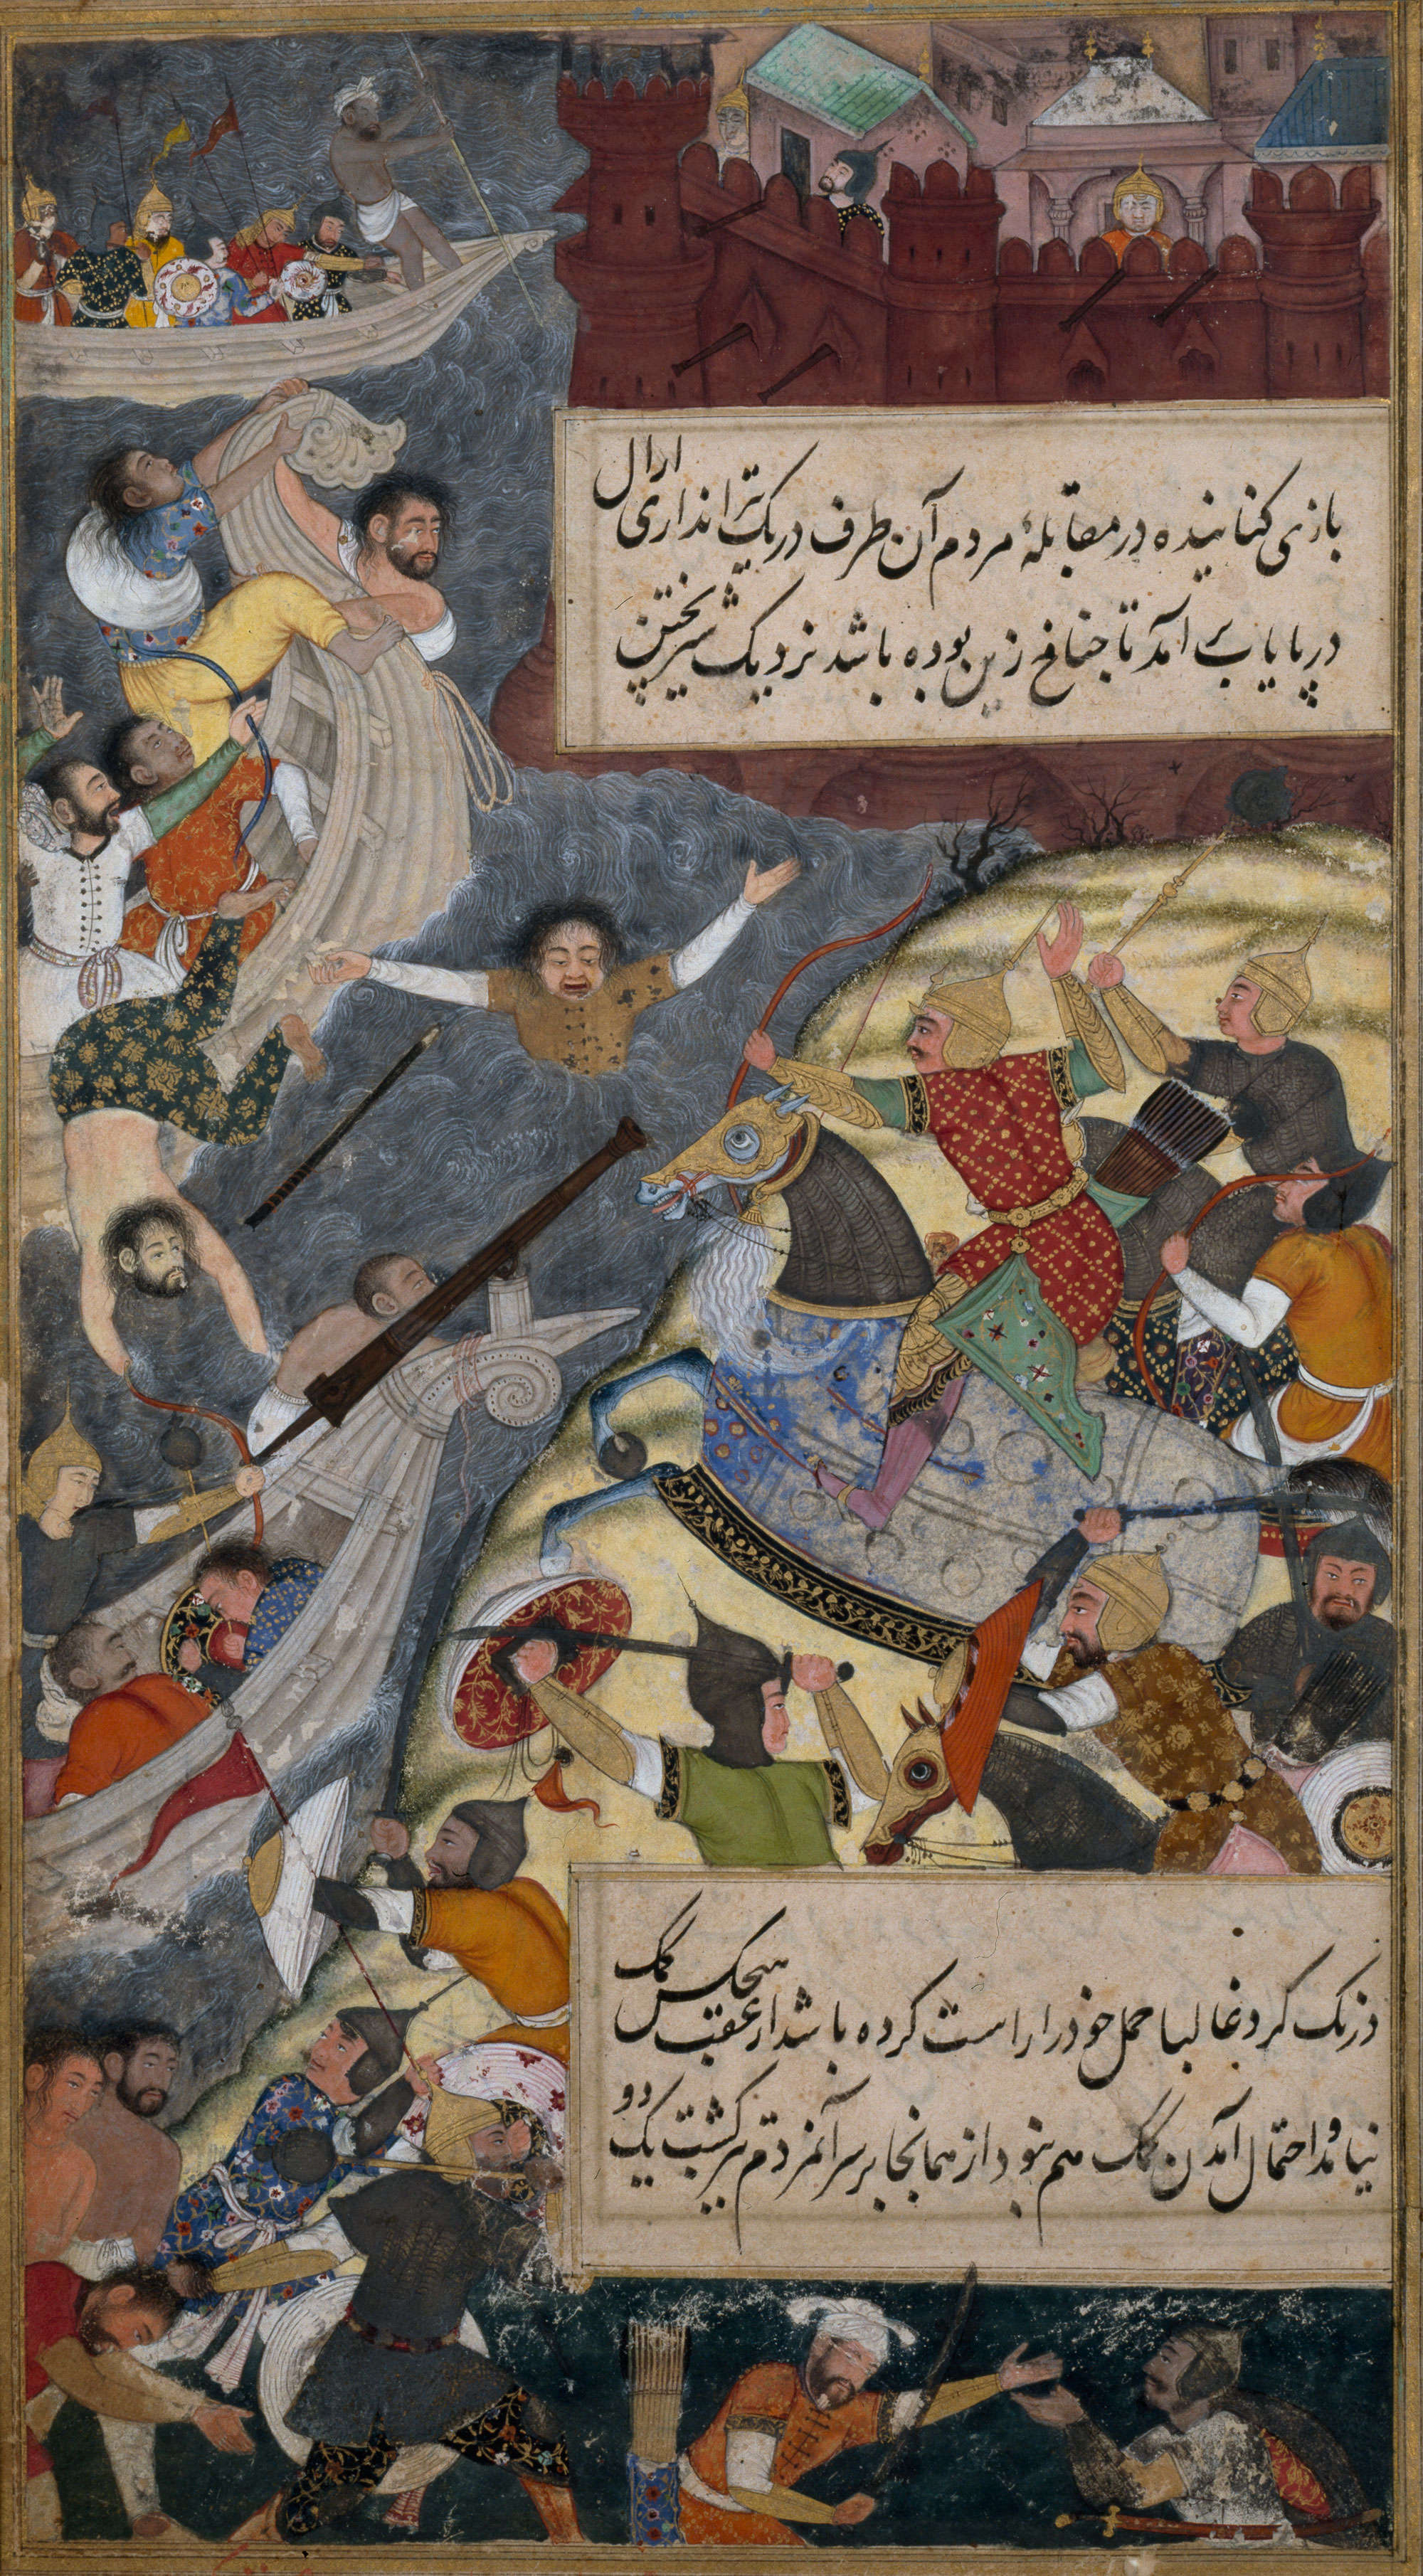 بازی کنانیده در مقابلهٔ مردم آن طرف در یک تیراندازی ارال
در پایابی آمد تا جناغ زین بوده باشد نزدیک شیر پختن
درنگ کرد غالبا حمل خود را راست کرده باشد از عقب هیچکس کمک
نیامد و احتمال آمدن کمک هم نبود از همانجا بر سر آنمردم تیز گشت یک دو